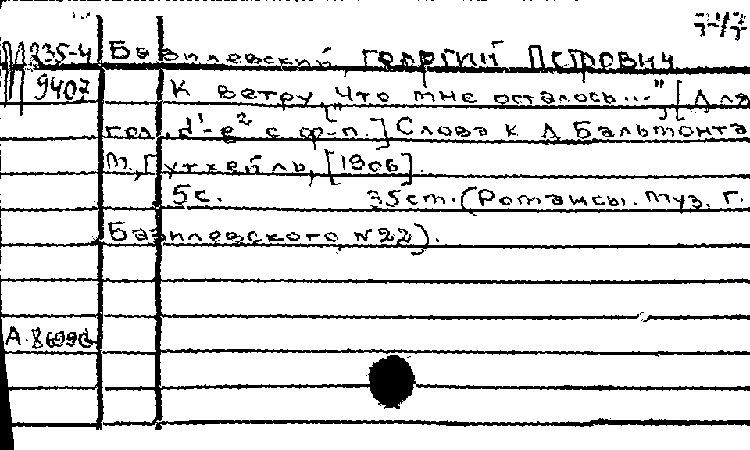 М 235-4 Базилевский, ГЕОРГИЙ ПЕТРОВИЧ
9407 К ветру. ["Что мне осталось..."] [Для
гол. d¹-e² с ф-п.] Слова К. Д. Бальмонта
М., Гутхейль, [1906].
5с. 35 ст. (Романсы. Муз. Г.
Базилевского, №22).